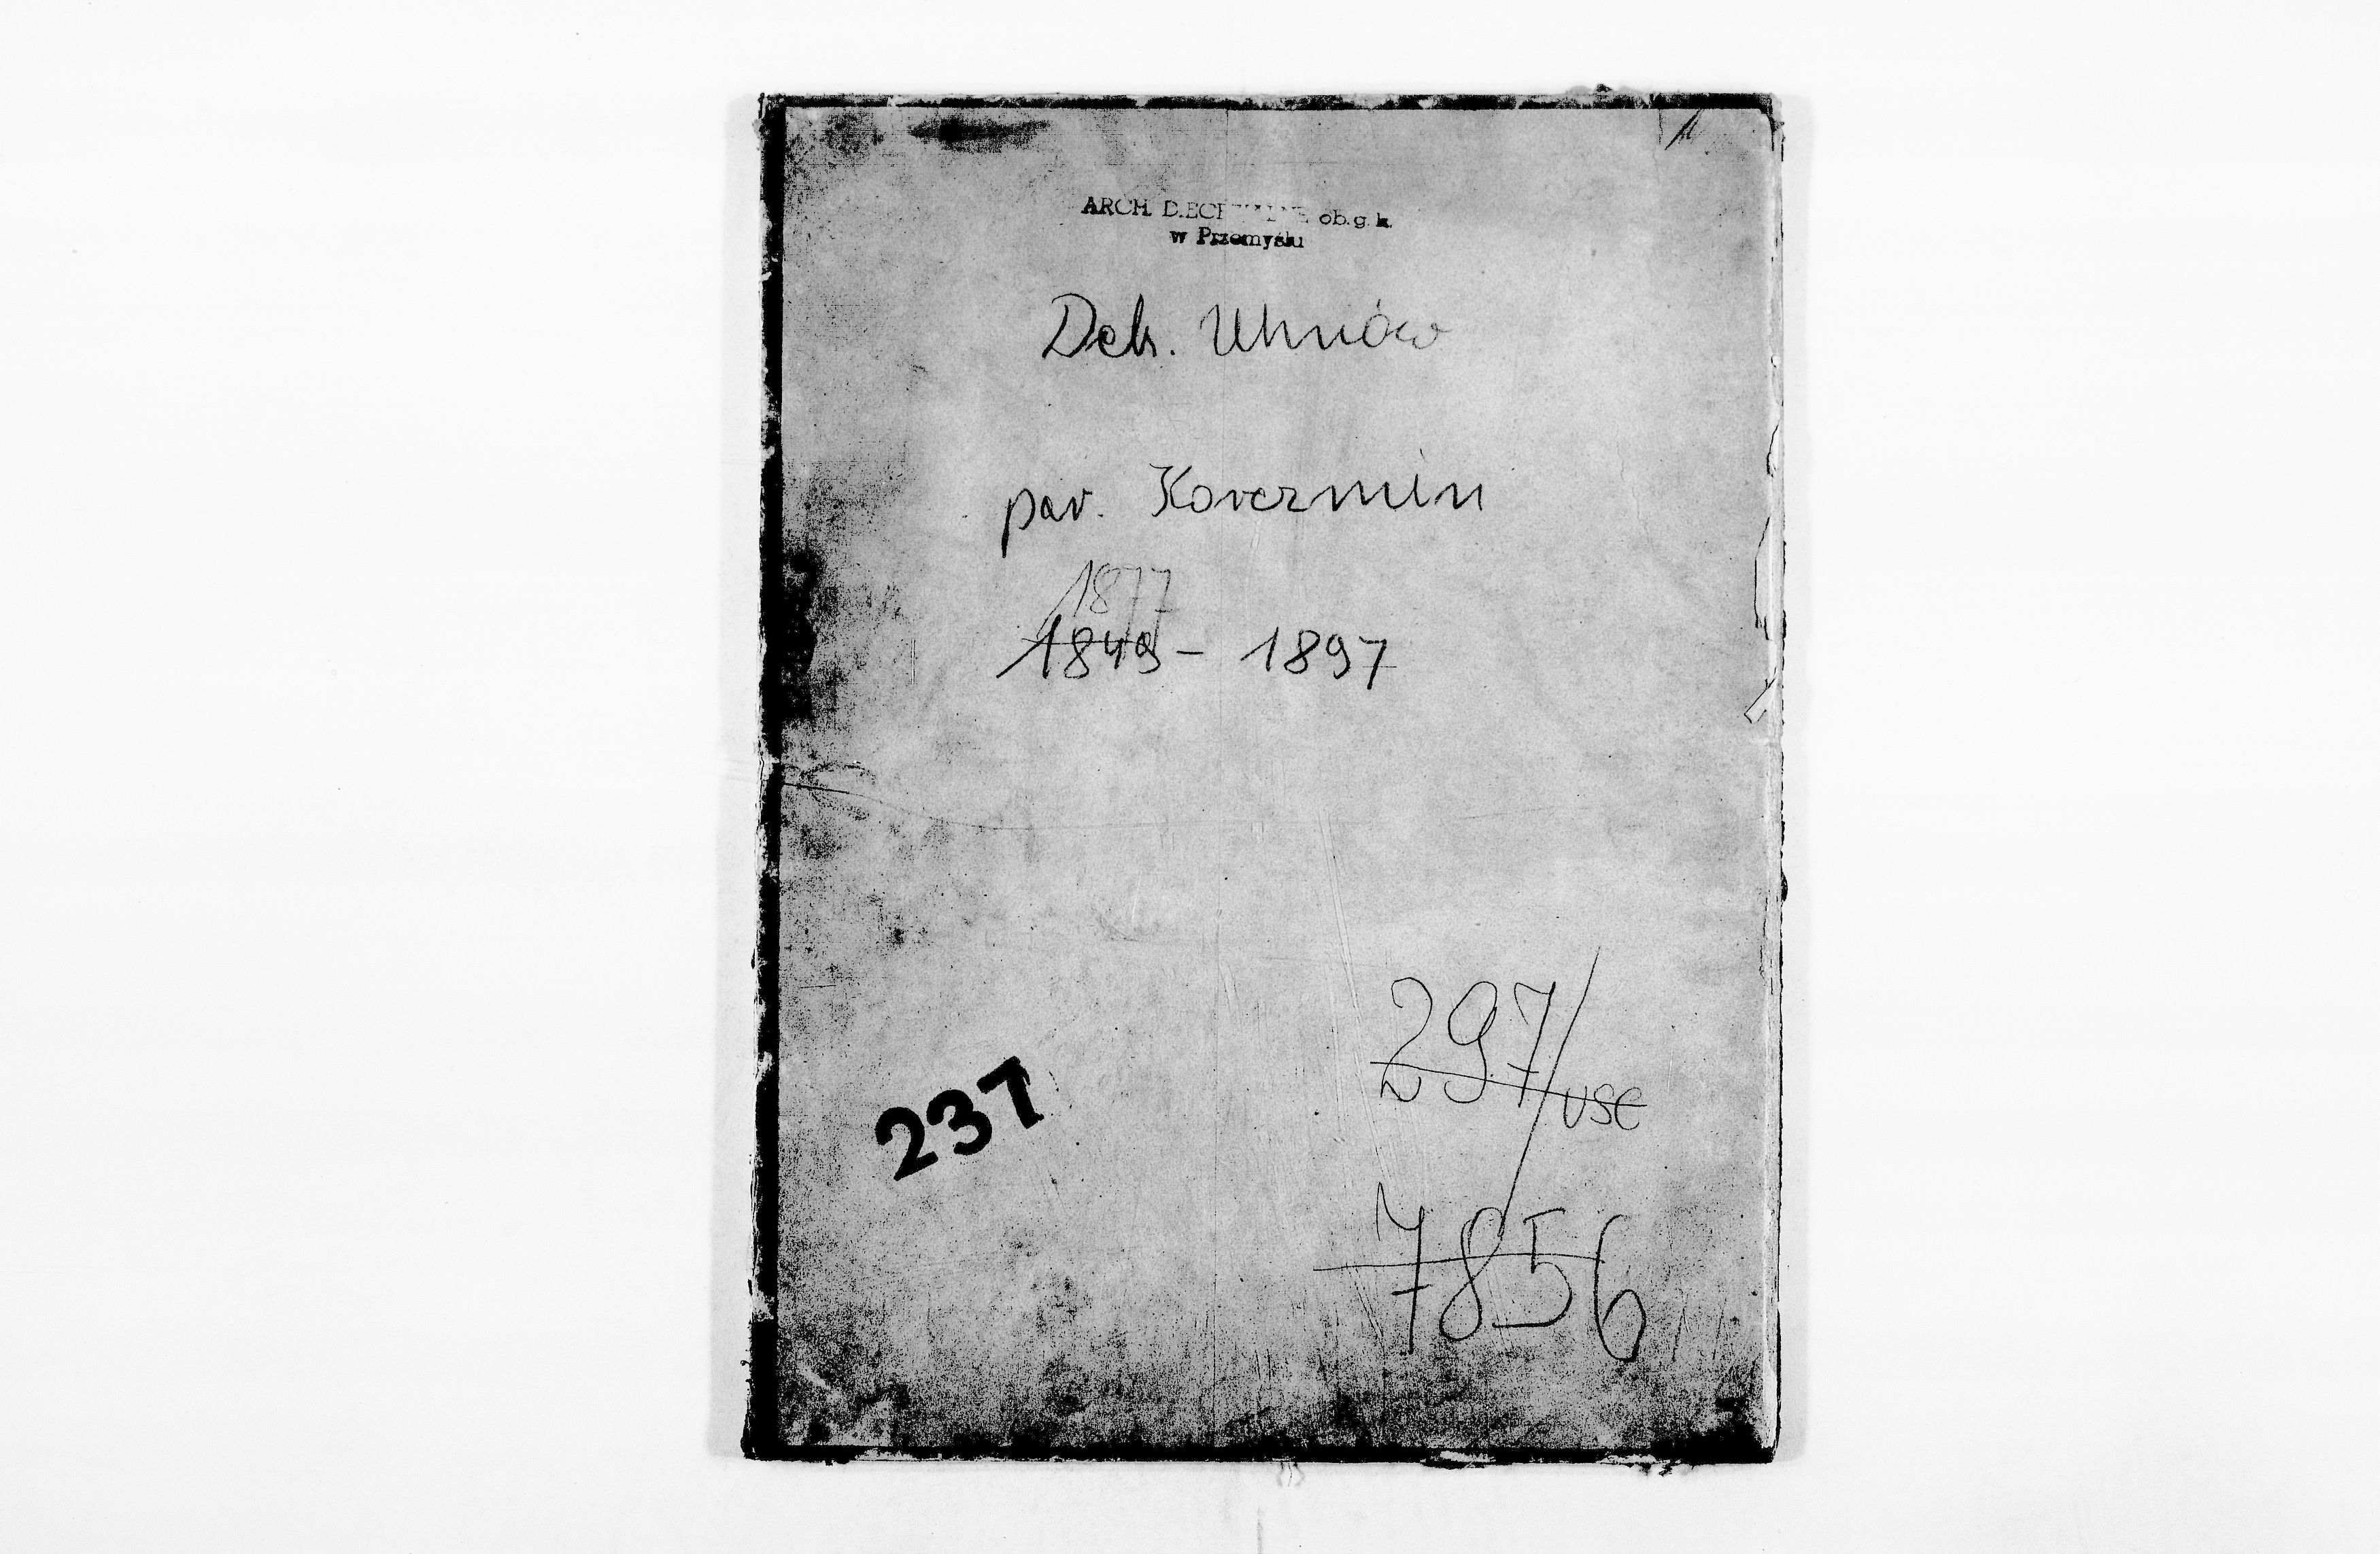 ARCH. ob. g. k.
w Przemyślu
Dek. Uhnów
par. Korczmin
1877
1849 - 1897
297/USC
237
7856